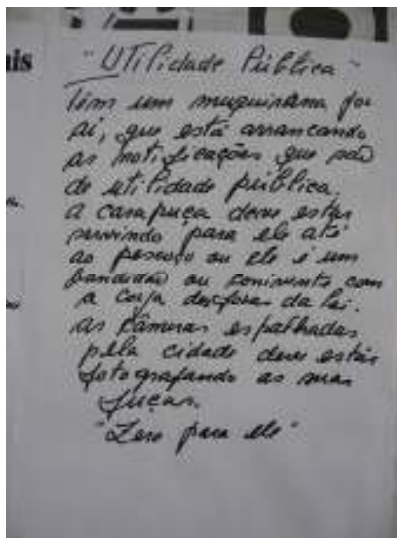 ais
"Utilidade Pública"
Tem um muquirama por
aí, que está arrancando
as notificações que são
de utilidade pública.
a carapuça deve estar
servindo para ele até
ao pescoço ou ele é um
bandidão ou conivente com
a corja dos fora da lei.
as câmeras espalhadas
pela cidade deve estar
fotografando as suas
fuças.
"Zero para ele"